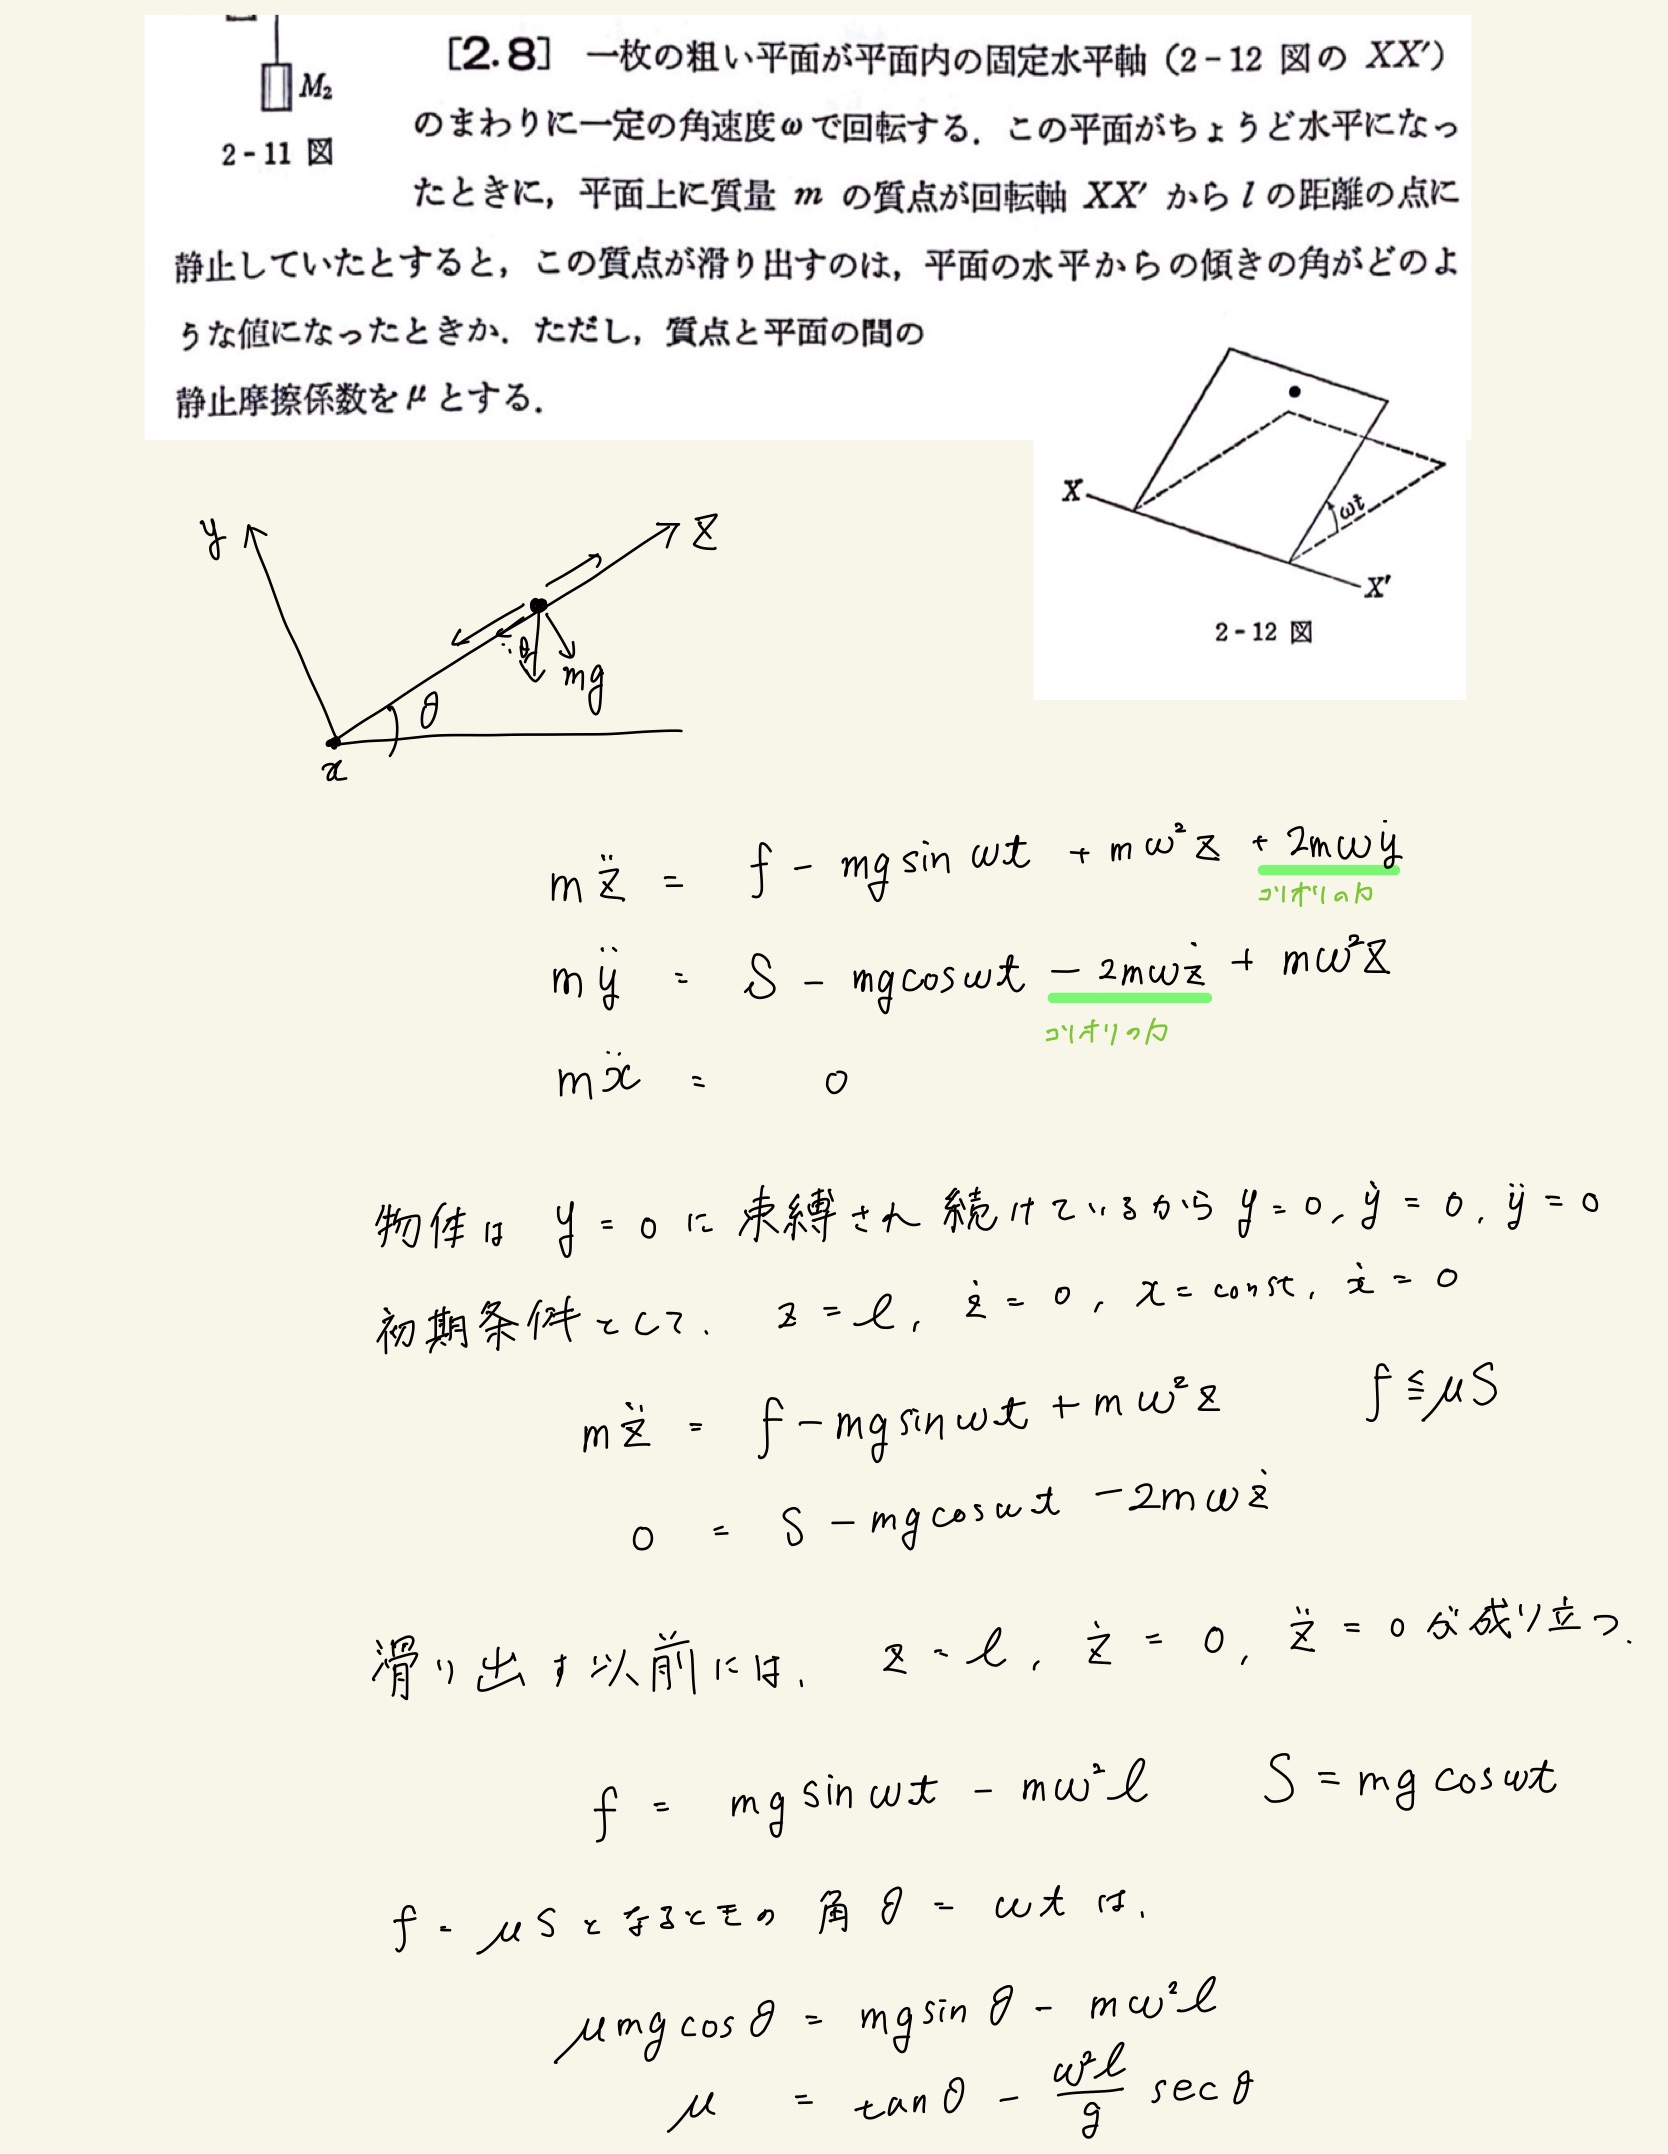 M₂
2-11 図
[2.8] 一枚の粗い平面が平面内の固定水平軸（2-12 図の XX′）
のまわりに一定の角速度ωで回転する．この平面がちょうど水平になっ
たときに，平面上に質量 m の質点が回転軸 XX′ から l の距離の点に
静止していたとすると，この質点が滑り出すのは，平面の水平からの傾きの角がどのよ
うな値になったときか．ただし，質点と平面の間の
静止摩擦係数をμとする．
X
ωt
X′
2-12 図
y
z
θ
mg
θ
x
mz̈ = f - mg sin ωt + mω²z + 2mωẏ
コリオリの力
mÿ = S - mg cos ωt - 2mωż + mω²z
コリオリの力
mẍ = 0
物体は y = 0 に束縛され続けているから y = 0, ẏ = 0, ÿ = 0
初期条件として. z = l, ż = 0, x = const, ẋ = 0
mz̈ = f - mg sin ωt + mω²z f ≦ μS
0 = S - mg cos ωt - 2mωż
滑り出す以前には. z = l, ż = 0, z̈ = 0 が成り立つ.
f = mg sin ωt - mω²l S = mg cos ωt
f = μS となるときの角 θ = ωt は.
μmg cos θ = mg sin θ - mω²l
μ = tan θ - ω²l/g sec θ